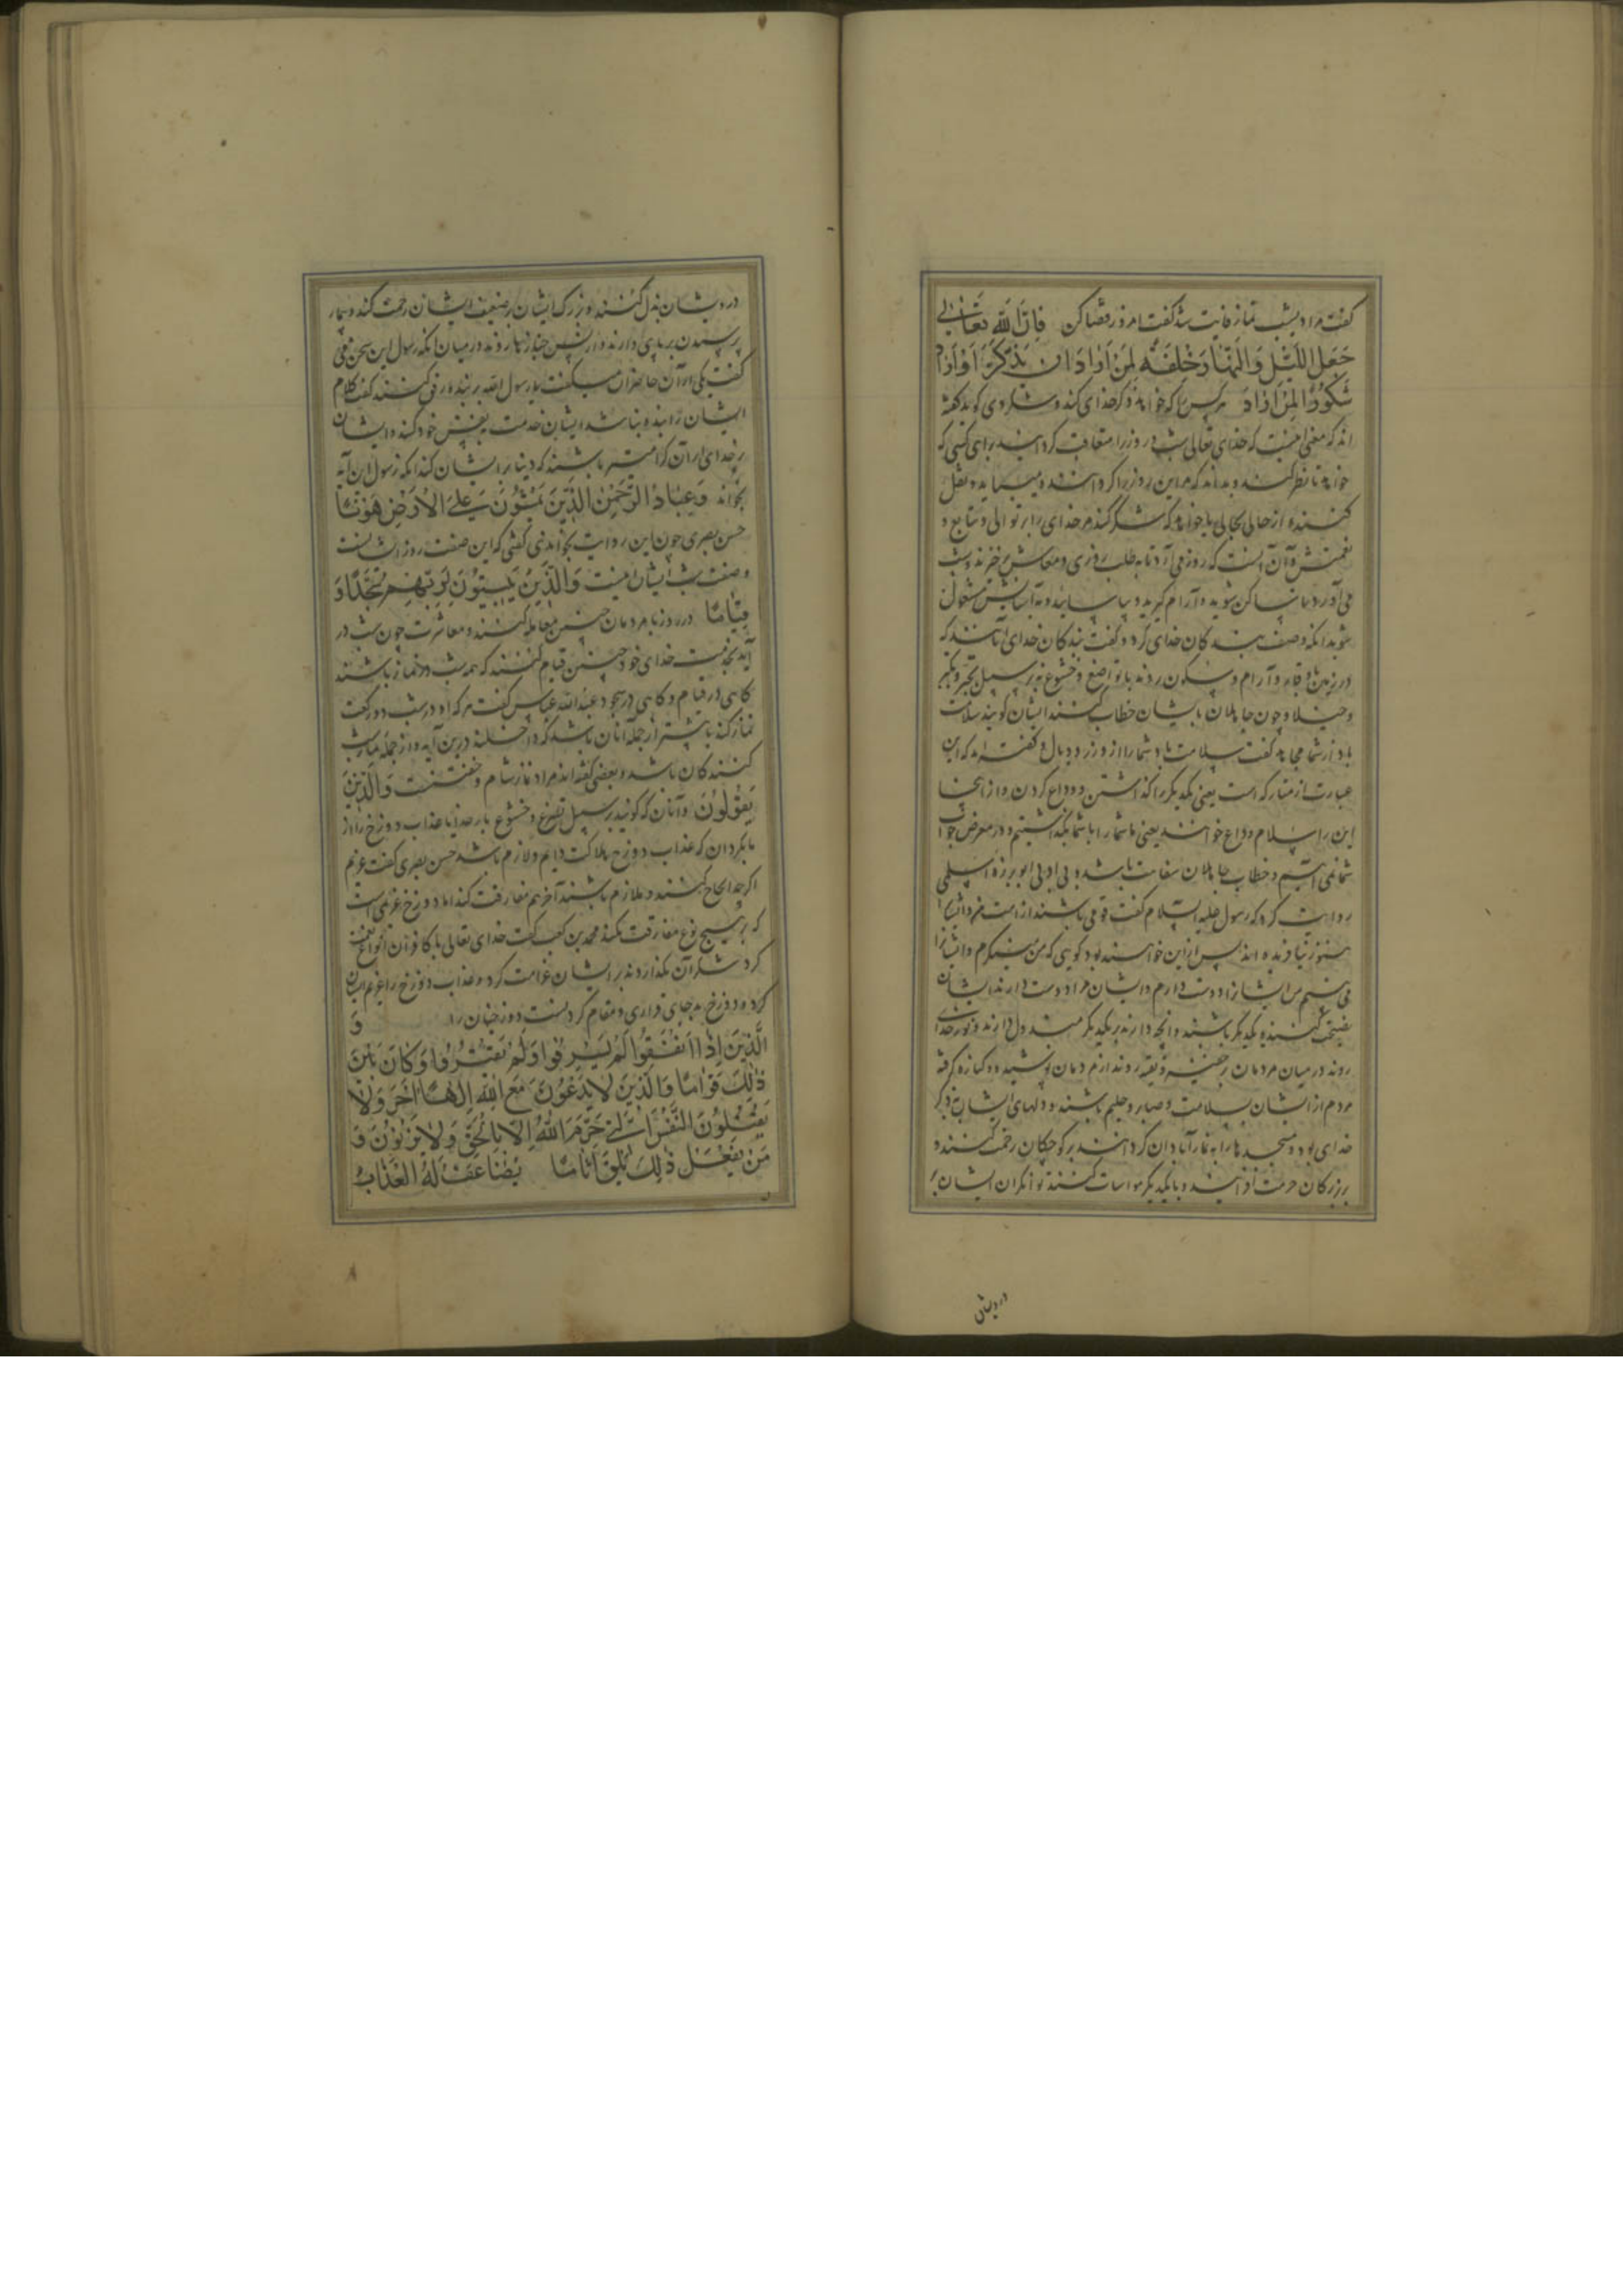 کفت مرا دیشب نماز فایت شد کفت امروز قضا کن فَاِنَّ اللّٰه تَعَالٰی
جَعَلَ اللَّیْلَ وَالنَّهَارَ خِلْفَةً لِمَنْ اَرَادَ اَنْ یَذَّکَّرَ اَوْ اَرَادَ
شُکُورًا لِمَنْ اَرَادَ هر کس را که خواهد ذکر خدای کند و شکر وی کوید کفته
اند که معنی اینست که خدای تعالی شب و روز را متعاقب کردانید برای کسی که
خواهد تا نظر کند و بداند که مر این روز را کرداننده میباید و نقل
کننده از حالی بحالی یا خواهد که شکر کند مر خدای را بر توالی و تتابع
نعمتش و آن آنست که روز می آرد تا به طلب روزی و معاش برخیزند و شب
می آرد تا ساکن شوید و آرام کیرید و بیاسایید و به آسایش مشغول
شوید آنکه وصف بندکان خدای کرد و کفت بندکان خدای آنانند که
در زمین با وقار و آرام و سکون روند با تواضع و خشوع نه بر سبیل تجبر و تکبر
و خیلا و چون جاهلان با ایشان خطاب کنند ایشان کویند سلامت
باد از شما مجاهد کفت سلامت باد شما را از وزر و وبال و کفته اند که این
عبارت از متارکه است یعنی یکدیکر را کذاشتن و وداع کردن و از اینجا
این را سلام وداع خوانند یعنی ما شما را با شما بکذاشتیم و در معرض جواب
شما نمی آییم و خطاب جاهلان سفاهت باشد و بی ادبی ابو برزه اسلمی
روایت کرد که رسول علیه السلام کفت قومی باشند از امت من و ایشان
هنوز نیافریده اند پس ازین خواهند بود کویی که من مینکرم و ایشانرا
می بینم من ایشانرا دوست دارم و ایشان مرا دوست دارند ایشان
نصیحت کننده یکدیکر باشند و آنچه دارند بر یکدیکر مبذول دارند و بنور خدای
روند در میان مردمان بر خفیه و تقیه روند از مردمان پوشیده و کناره کرفته
مردم از ایشان بسلامت و صابر و حلیم باشند و دلهای ایشان بذکر
خدای بود و مسجدها را به نماز آبادان کردانند بر کوچکان رحمت کنند و
بزرکان حرمت دارند و با یکدیکر مواسات کنند توانکران ایشان بر
درویشان
درویشان بذل کنند و بزرک ایشان بر ضعیف ایشان رحمت کند و بیمار
پرسیدن بر پای دارند و از پس جنازها روند در میان آنکه رسول این سخن می
کفت یکی از آن حاضران میکفت یا رسول الله بر بنده رفق کنند کفت کلام
ایشان را بنده نباشد ایشان خدمت بنفس خود کنند و ایشان
بر خدای از آن کرامیتر باشند که دنیا بر ایشان کند آنکه رسول این آیه
بخواند وَعِبَادُ الرَّحْمٰنِ الَّذِیْنَ یَمْشُوْنَ عَلَی الْاَرْضِ هَوْنًا
حسن بصری چون این روایت بخواندی کفتی که این صفت روز ایشانست
وصفت شب ایشان اینست وَالَّذِیْنَ یَبِیْتُوْنَ لِرَبِّهِمْ سُجَّدًا وَ
قِیَامًا در روز با مردمان حسن معامله کنند و معاشرت چون شب در
آید بخدمت خدای خود چنین قیام کنند که همه شب در نماز باشند
کاهی در قیام و کاهی در سجود عبدالله عباس کفت هر که او در شب دو رکعت
نماز کند یا بیشتر از جمله آنان باشد که داخلند درین آیه و از جمله
کنندکان باشد و بعضی کفته اند مراد نماز شام و خفتنست وَالَّذِیْنَ
یَقُوْلُوْنَ و آنان که کویند بر سبیل تضرع و خشوع بار خدایا عذاب دوزخ را از
ما بکردان که عذاب دوزخ هلاکت دایم و لازم باشد حسن بصری کفت غریم
اکرچه الحاح کنند و ملازم باشند آخر هم مفارقت کند اما دوزخ غریمی است
که بر هیچ نوع مفارقت نکند محمد بن کعب کفت خدای تعالی با کافران انواع نعمت
کرد شکر آن نکذاردند بر ایشان غرامت کرد و عذاب دوزخ را غریم ایشان
کرد و دوزخ بد جای قراری و مقام کردنست دوزخیان را وَ
الَّذِیْنَ اِذَا اَنْفَقُوْا لَمْ یُسْرِفُوْا وَلَمْ یَقْتُرُوْا وَکَانَ بَیْنَ
ذٰلِکَ قَوَامًا وَالَّذِیْنَ لَا یَدْعُوْنَ مَعَ اللّٰهِ اِلٰهًا اٰخَرَ وَلَا
یَقْتُلُوْنَ النَّفْسَ الَّتِیْ حَرَّمَ اللّٰهُ اِلَّا بِالْحَقِّ وَلَا یَزْنُوْنَ وَ
مَنْ یَفْعَلْ ذٰلِکَ یَلْقَ اَثَامًا یُضَاعَفْ لَهُ الْعَذَابُ